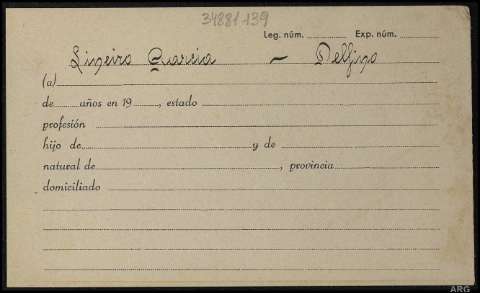 34881 139
Leg. núm. Exp. núm.
Lixeiro Guarcia — Delfino
(a)
de años en 19 , estado
profesión
hijo de y de
natural de , provincia
domiciliado
ARG